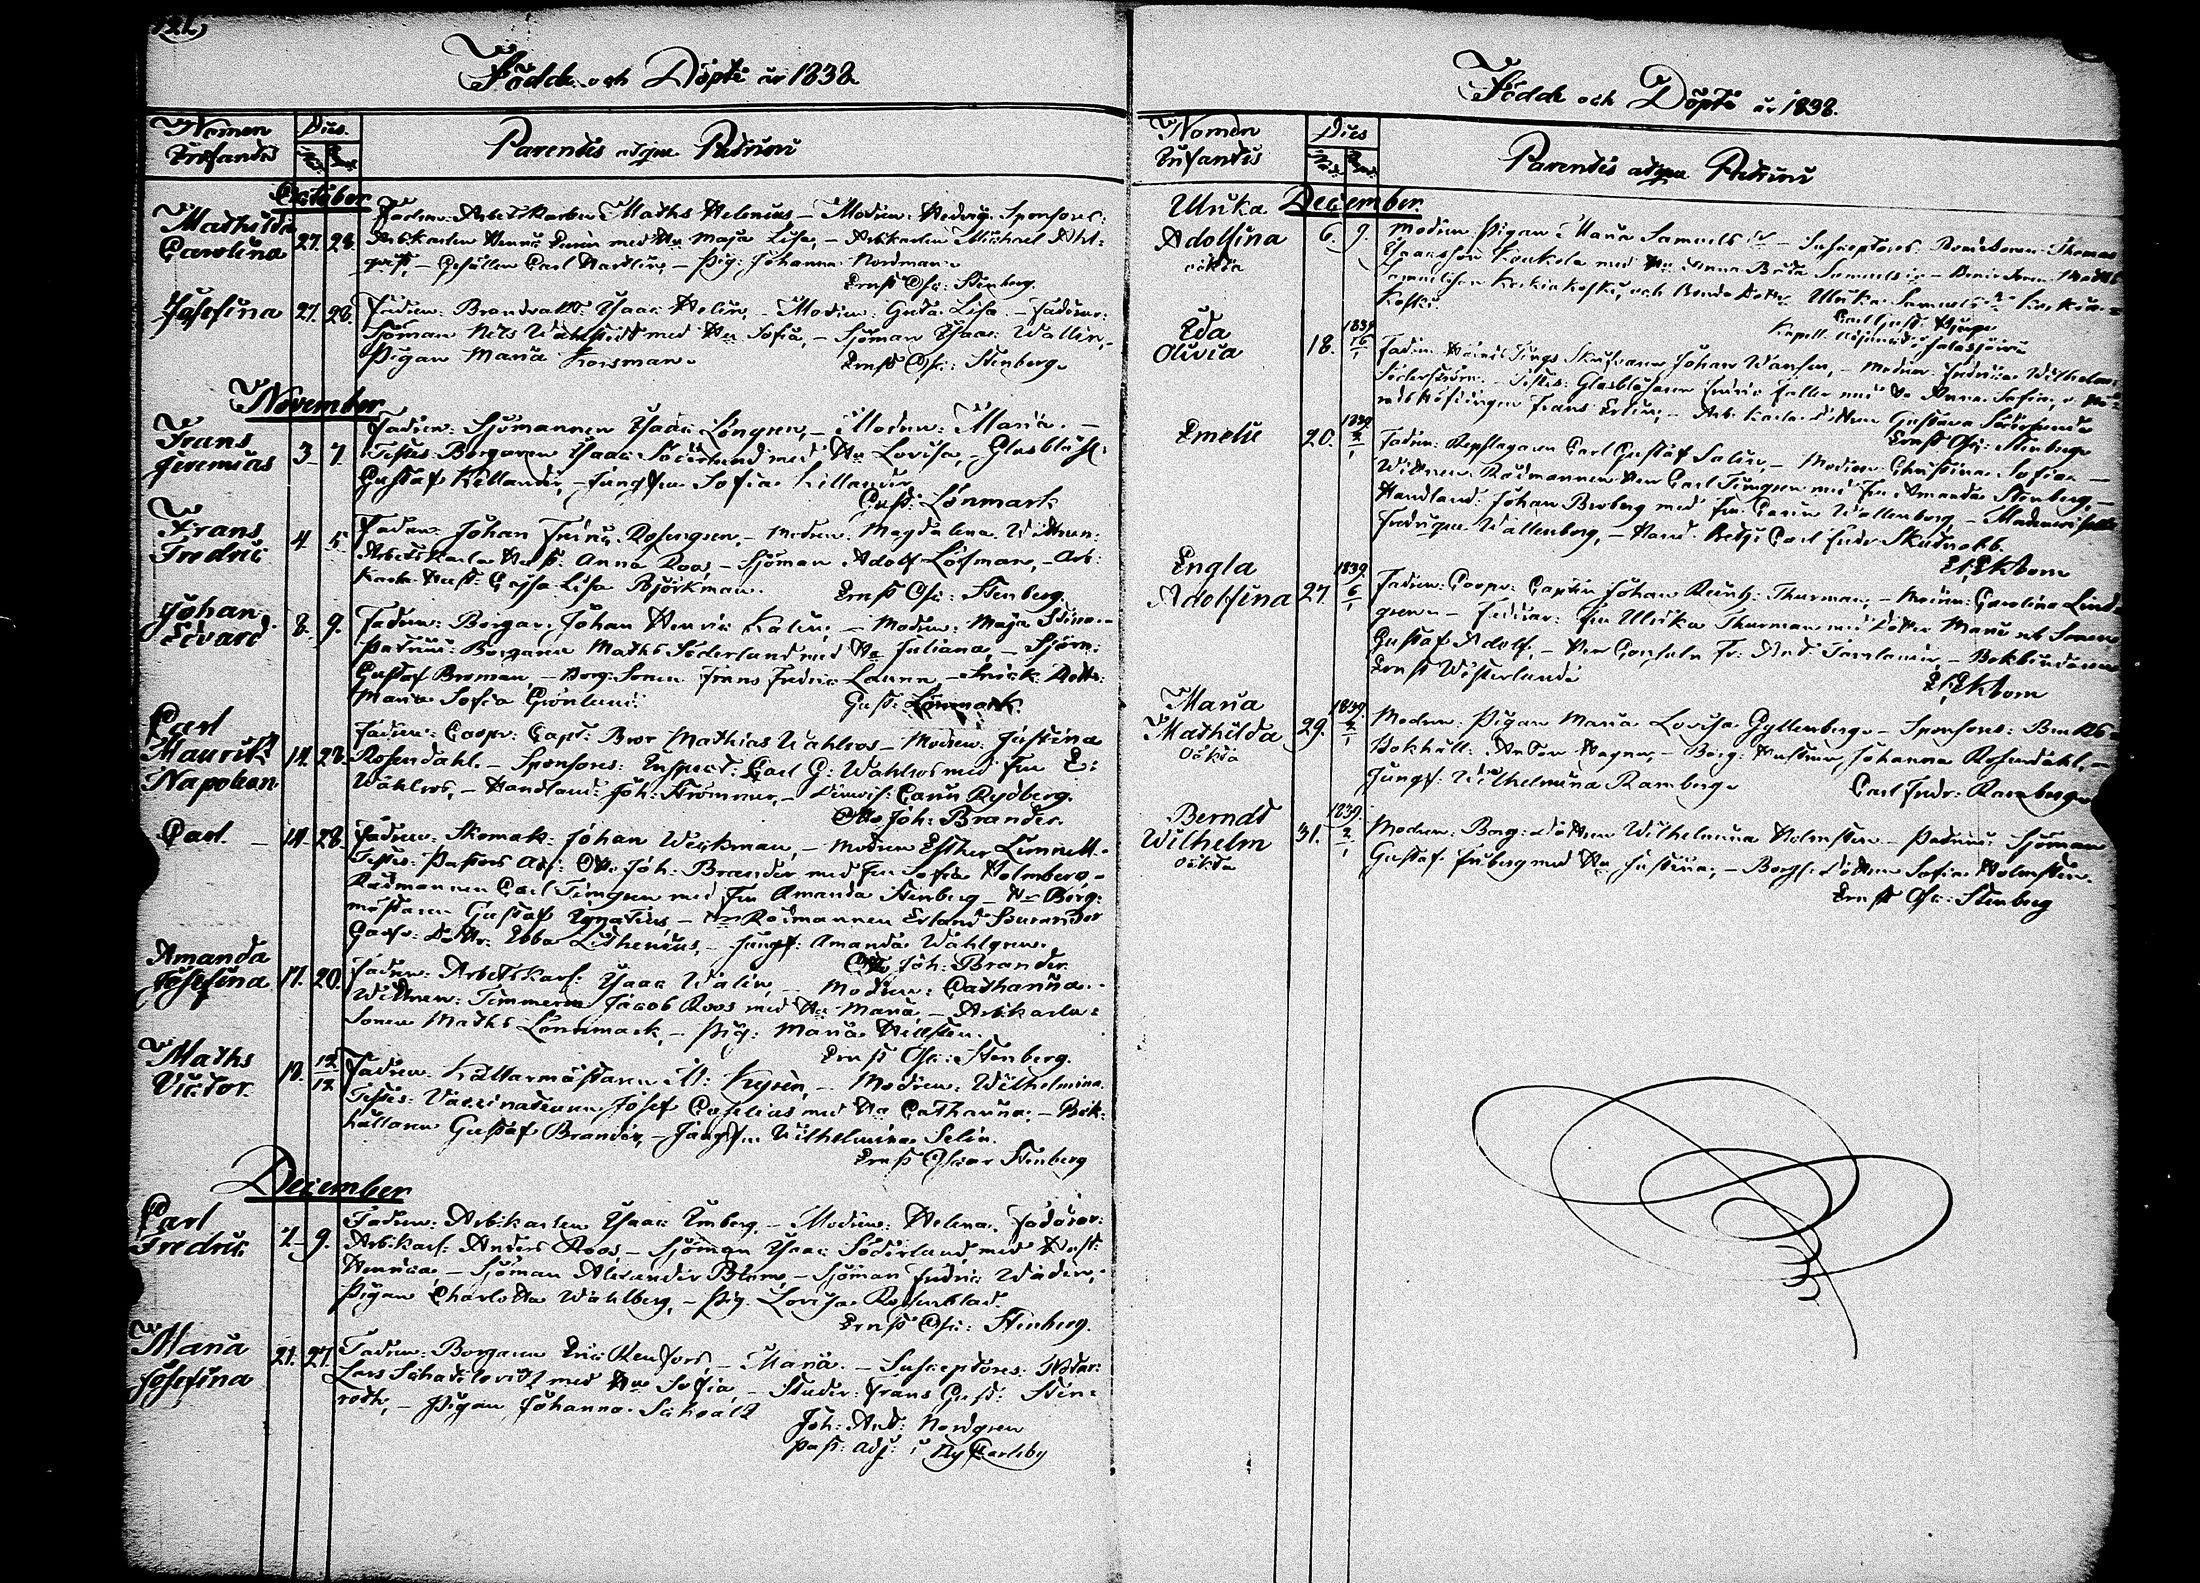 Födde och Döpte år 1838.
Nomen Infantis
Dies
Parentes atque Patrini
October
Mathilda Carolina 27. 28.
Fadren: Arbetskarlen Maths Helenius – Modren: Hedvig. Sponsores:
Arbkarlen Henric med Hu Maja Lisa, – Arbkarlen Michael Ahl-
qvist, – Gesällen Carl Hartlin, – Pig: Johanna Nordman.
Ernst Osc: Stenberg.
Josefina 27. 28.
Fadren: Brandvakt: Isaac Helin, – Modren: Greta Lisa. – Faddrar:
Sjöman Nils Wahlstedt med Hu Sofia, – Sjöman Isaac Wallin,
Pigan Maria Korsman.
Ernst Osc: Stenberg.
November
Frans Jeremias 3. 7.
Fadren: Sjömannen Isaac Löngren, – Modren: Maria. –
Testes Borgaren Isaac Söderlund med Hu Lovisa, – Glasblås:
Gustaf Killander, – Jungfru Sofia Killander
Gust: Lönmark
Frans Fredric 4. 5.
Fadren: Johan Fredric Rosengren, – Modren: Magdalena. Wittnen:
Arbetskarls Hust: Anna Roos, – Sjöman Adolf Löfman, – Arb:
karls Hust: Cajsa Lisa Björkman.
Ernst Osc: Stenberg.
Johan Edvard 8. 9.
Fadren: Borgar: Johan Henric Kalin, – Modren: Maja Stina. –
Patrini: Borgaren Maths Söderlund med Hu Juliana, – Sjöm:
Gustaf Broman, – Borg: Sonen Frans Fredric – Dotte:
Maria Sofia Grönlund.
Gust: Lönmark.
Carl Maurits Napoleon 14. 28.
Fadren: Coopv: Capt: Bror Mathias Wahlroos – Modren: Justina
Rosendahl. – Sponsores: Inspect: Carl G: Wahlroos med Fru E:
Wahlroos, – Handland: Joh: Strömmer, – Carin Rydberg.
Otto Joh: Brander.
Carl. – 14. 28.
Fadren: Skomak: Johan Weckman, – Modren Esther Limnell. –
Testes: Pastors Adj: Ott: Joh: Brander med Fru Sofia Holmberg, –
Rådmannen Carl Timgren med Fru Amanda Stenberg – Hr Borg:
mästaren Gustaf Ignatius, – Hr Rådmannen Erland Sourander
Dottr: Ebba Lithenius, – Jungf: Amanda Wahlgren.
Otto Joh: Brander.
Amanda Josefina 17. 20.
Fadren: Arbetskarl: Isaac Walin, – Modren: Catharina. –
Wittnen: Timmerm Jacob Roos med Hu Maria, – Arbkarls-
Sonen Maths Lönnmark, – Pig: Maria Hellsten.
Ernst Osc: Stenberg.
Maths Victor. 18. 12/12
Fadren: Källarmästaren M: Kyrén, – Modren: Wilhelmina.
Testes: Vaccinateuren Josef Caselius med Hu Catharina, – Bok:
hållaren Gustaf Brander, – Jungfru Wilhelmina Selin.
Ernst Oscar Stenberg
December
Carl Fredric 7. 9.
Fadren: Arbkarlen Isaac Enberg – Modren: Helena. Faddrar:
Arbkarl: Anders Roos, – Sjöman Isaac Söderlund med Hust:
Henrica – Sjöman Alexander Blom, – Sjöman Fredric Widen,
Pigan Charlotta Wahlberg, – Pig. Lovisa Rosenblad.
Ernst Osc: Stenberg.
Maria Josefina 21. 27.
Fadren: Borgaren Eric Renfors, – Maria. – Susceptores: Notar:
Lars Schadelovitz med Hu Sofia, – Studer: Frans Gust: Sten-
roth, – Pigan Johanna Schvalt
Joh: And: Nordgren
past: adj: i Ny Carleby
Födde och Döpte år 1838.
Nomen Infantis
Dies
Parentes atque Patrini
December.
Ulrika Adolfina oäkta 6. 9.
Modren: Pigan Maria Samuels dr – Susceptores: Bondesonen Thomas
Isaacsson Koukola med Hu Anna Brita Samuelsdr – Bondesonen Matts
och Bonde Dottr: Ulrika Samuels dr
Koski.
Carl Gust: Hjerpe
Kapell: Adjunct i Jalasjärvi
Ida Olivia 18. 1839 16/1
Fadren: Härads Tings Skrifvaren Johan Wansén, – Modren: Fredrica Wilhelm:
Söderström. – Testes: Glasblåsaren Fredric Feller med Hu Anna Sofia, – Hä-
radshöfdingen Frans Erlin, – Arb: karls Dottren Gustava Söderlund
Ernst Osc: Stenberg
Emelie 20. 1839 2/1
Fadren: Repslagaren Carl Gustaf Salin, – Modren: Christina Sofia –
Wittnen: Rådmannen Herr Carl Timgren med Fru Amanda Stenberg, –
Handland: Johan Broberg med Fru Carin Wallenberg, – Mademoiselle
Fredrique Wallenberg, – Hand: Betj: Carl Fredr: Skutnabb.
El: Ekbom
Engla Adolfina 27. 1839 6/1
Fadren: Coopv: Captin Johan Reinh: Thurman, – Modren: Carolina Lind-
gren – Faddrar: Fru Ulrika Thurman med Dotter Marie och Sonen
Gustaf Adolf, – Herr Consuln Fr: And: – Bokbindaren
Ernst Westerlund
El: Ekbom
Maria Mathilda oäkta 29. 1839. 2/1
Modren: Pigan Maria Lovisa Gyllenberg – Sponsores: Bruks-
Bokhåll: Anton Hagner, – Borg: Hustrun Johanna Rosendahl, –
Jungf: Wilhelmina Ramberg.
Carl Fredr: Ramberg
Berndt Wilhelm oäkta 31. 1839. 2/1
Modren: Borg: Dottren Wilhelmina Holmsten – Patrini Sjöman
Gustaf Friberg med Hu Justina, – Borgr: Dottren Sofia Holmsten.
Ernst Osc: Stenberg